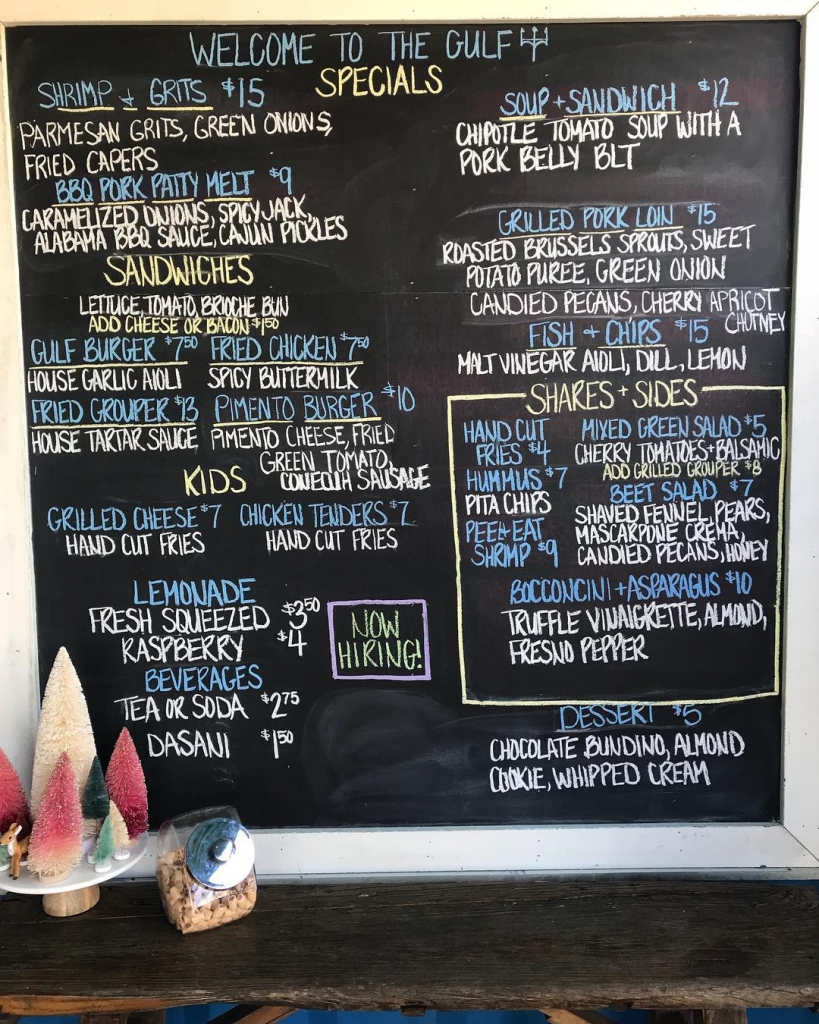 WELCOME TO THE GULF
SPECIALS
SHRIMP + GRITS $15
PARMESAN GRITS, GREEN ONIONS,
FRIED CAPERS
BBQ PORK PATTY MELT $9
CARAMELIZED ONIONS, SPICY JACK,
ALABAMA BBQ SAUCE, CAJUN PICKLES
SOUP + SANDWICH $12
CHIPOTLE TOMATO SOUP WITH A
PORK BELLY BLT
GRILLED PORK LOIN $15
ROASTED BRUSSELS SPROUTS, SWEET
POTATO PUREE, GREEN ONION
CANDIED PECANS, CHERRY APRICOT
CHUTNEY
FISH + CHIPS $15
MALT VINEGAR AIOLI, DILL, LEMON
SANDWICHES
LETTUCE, TOMATO, BRIOCHE BUN
ADD CHEESE OR BACON $1.50
GULF BURGER $7.50
HOUSE GARLIC AIOLI
FRIED CHICKEN $7.50
SPICY BUTTERMILK
FRIED GROUPER $13
HOUSE TARTAR SAUCE
PIMENTO BURGER $10
PIMENTO CHEESE, FRIED
GREEN TOMATO,
CONECUH SAUSAGE
KIDS
GRILLED CHEESE $7
HAND CUT FRIES
CHICKEN TENDERS $7
HAND CUT FRIES
LEMONADE
FRESH SQUEEZED $3.50
RASPBERRY $4
BEVERAGES
TEA OR SODA $2.75
DASANI $1.50
NOW
HIRING!
SHARES + SIDES
HAND CUT
FRIES $4
HUMMUS $7
PITA CHIPS
PEEL+EAT
SHRIMP $9
MIXED GREEN SALAD $5
CHERRY TOMATOES+BALSAMIC
ADD GRILLED GROUPER $8
BEET SALAD $7
SHAVED FENNEL, PEARS,
MASCARPONE CREMA,
CANDIED PECANS, HONEY
BOCCONCINI + ASPARAGUS $10
TRUFFLE VINAIGRETTE, ALMOND,
FRESNO PEPPER
DESSERT $5
CHOCOLATE BUNDINO, ALMOND
COOKIE, WHIPPED CREAM